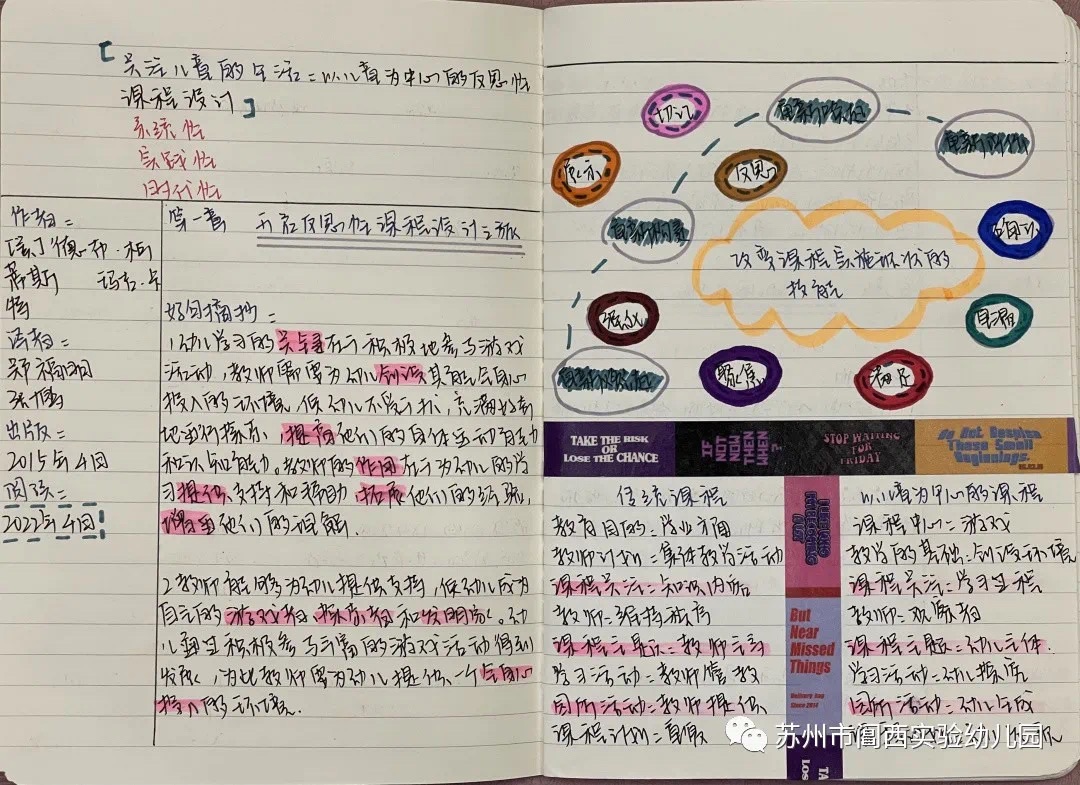 关注儿童的生活：以儿童为中心的反思性
课程设计
系统性
实践性
时代性
作者：
［美］德布·柯
蒂斯 玛吉·卡
特
译者：
郑福明
张博
出版：
2015年4月
阅读：
2022年4月
第一章 开启反思性课程设计之旅
好句摘抄：
1幼儿学习的关键在于积极地参与游戏
活动，教师需要为幼儿创设其能全身心
投入的环境，使幼儿不受干扰，充满好奇
地进行探索，提高他们的身体运动能力
和认知能力。教师的作用在于为幼儿的学
习提供支持和帮助，拓展他们的经验，
增进他们的理解。
2教师能够为幼儿提供支持，使幼儿成为
自己的游戏者，探索者和发明家。幼
儿通过积极参与丰富的游戏活动得到
发展，为此教师需为幼儿提供一个全身心
投入的环境。
切记
展示
反思
改变课程实施现状的
技能
TAKE THE RISK
OR
LOSE THE CHANCE
IF
NOT
NOW
THEN
WHEN
?
STOP WAITING
FOR
FRIDAY
Do Not Despise
These Small
Beginnings.
But
Near
Missed
Things
Since 2014
传统课程
教育目的：学业
教师计划：集体教学活动
课程关注：知识内容
教师：维持秩序
课程主题：教师主导
学习活动：教师管教
厕所活动：教师提供
课程计划：
以儿童为中心的课程
课程中心：游戏
教学的基础：创设环境
课程关注：学习过程
教师：观察者
课程主题：幼儿主体
学习活动：幼儿操作
活动：幼儿生成
TA
LOS
苏州市阊西实验幼儿园